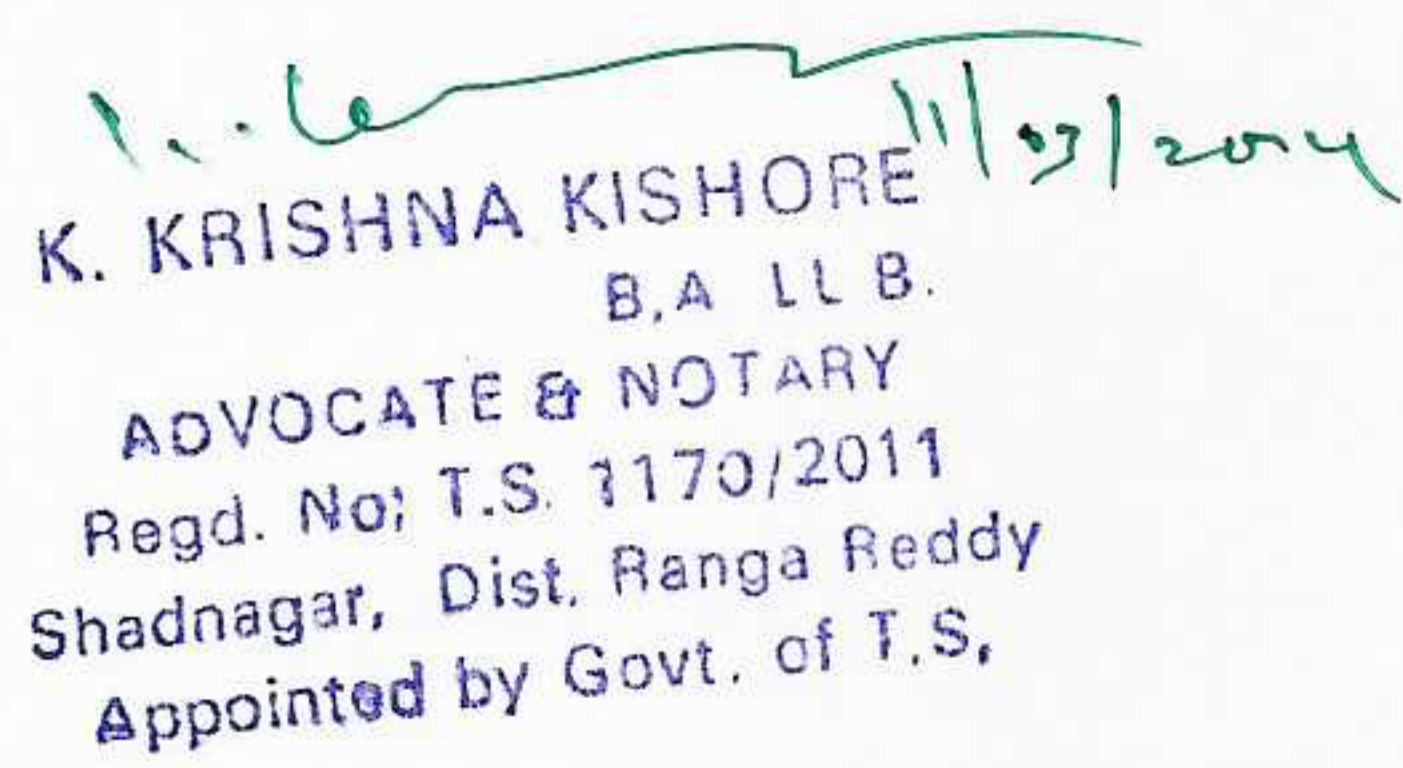 11/03/2024
K. KRISHNA KISHORE
B.A LL B.
ADVOCATE & NOTARY
Regd. No: T.S. 1170/2011
Shadnagar, Dist. Ranga Reddy
Appointed by Govt. of T.S.